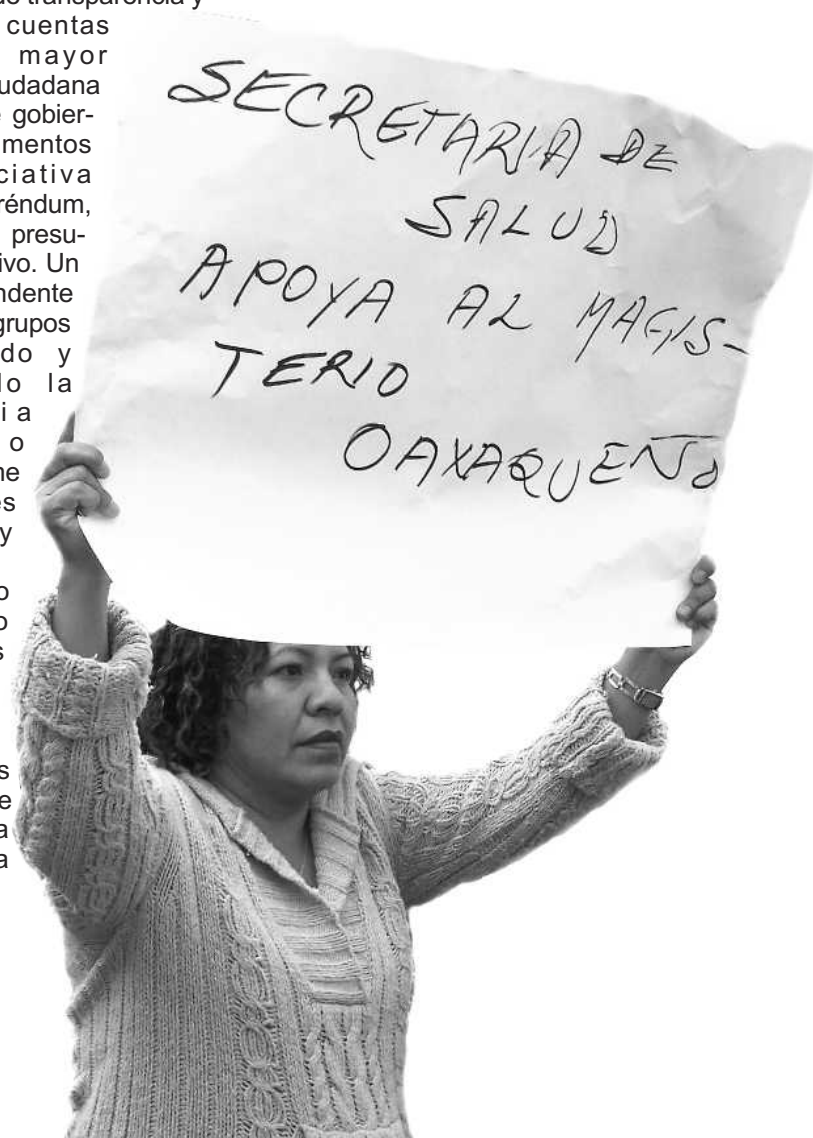 de transparencia y
cuentas
mayor
udadana
e gobier-
mentos
ciativa
réndum,
presu-
ivo. Un
ndente
grupos
do y
lo la
ia
o
ne
es
y
o
o
s
s
e
a
a
SECRETARIA DE
SALUD
APOYA AL MAGIS-
TERIO
OAXAQUEÑO